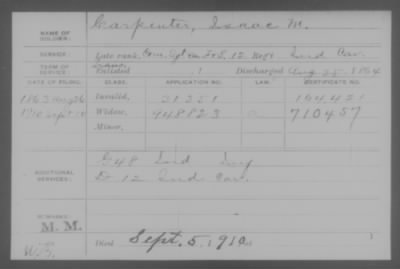 NAME OF SOLDIER: Carpenter, Isaac M.
SERVICE: Late rank, Com. Sgt F+S. 12 Regt Ind Cav.
TERM OF SERVICE: Enlisted 1 Discharged Aug. 25, 1864
DATE OF FILING. CLASS. APPLICATION NO. LAW. CERTIFICATE NO.
Invalid, 31351
1910 Sept 10 Widow, 948823 710457
Minor,
ADDITIONAL SERVICES: G 48 Ind Inf
D 12 Ind Cav.
REMARKS:
M. M.
Died Sept. 5, 1910, at